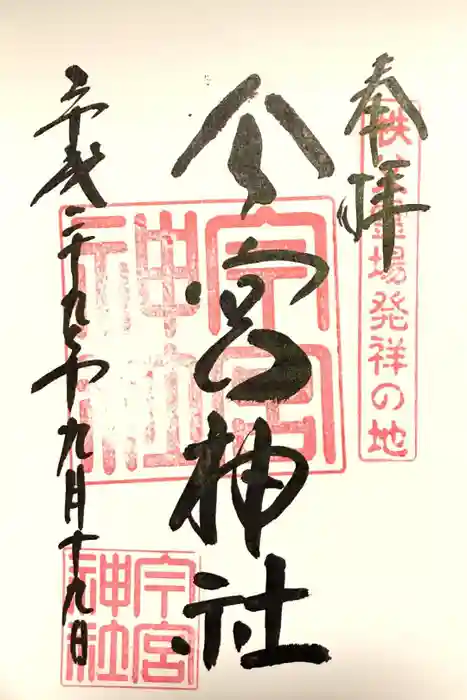 奉拝
秩父霊場発祥の地
今宮神社
今宮
神社
今宮
神社
平成二十九年九月十九日